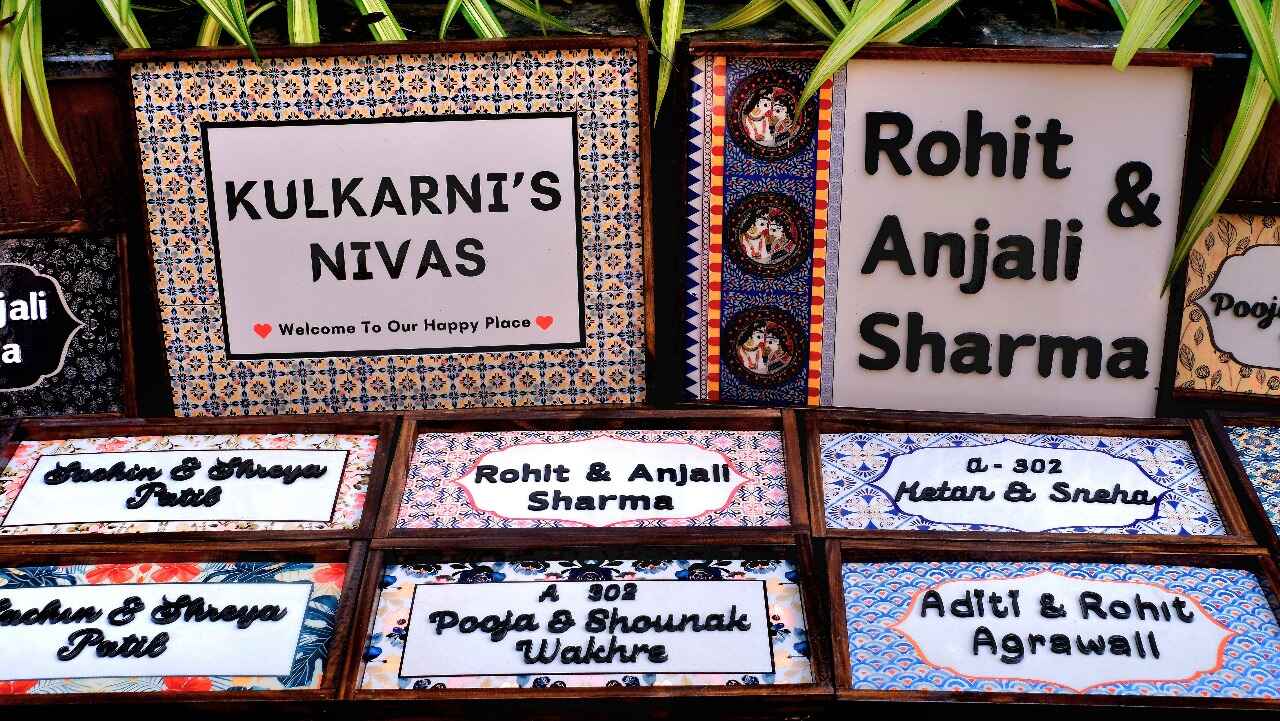 KULKARNI'S
NIVAS
Welcome To Our Happy Place
Rohit &
Anjali
Sharma
Sachin & Shreya
Patil
Rohit & Anjali
Sharma
A - 302
Ketan & Sneha
Sachin & Shreya
Patil
A 302
Pooja & Shounak
Wakhre
Aditi & Rohit
Agrawall